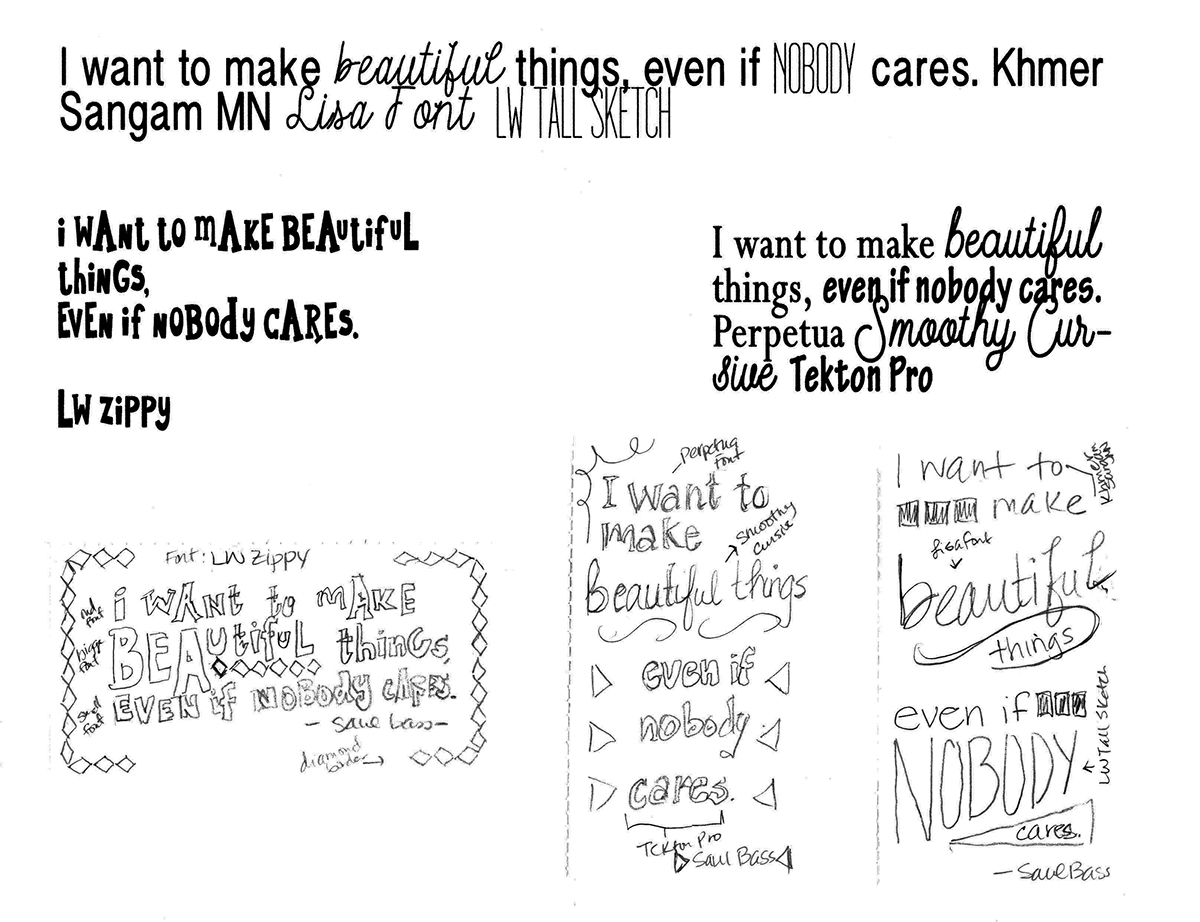 I want to make beautiful things, even if NOBODY cares. Khmer
Sangam MN Lisa Font LW TALL SKETCH
i WANt to mAKE BEAutifuL
thiNGS,
EVEN if NOBODy CAREs.
LW ZiPPy
I want to make beautiful
things, even if nobody cares.
Perpetua Smoothy Cur-
sive Tekton Pro
Font: LW Zippy
i WANt to mAKE
BEAutifuL thiNGS,
EVEN if NOBODy CAREs.
- Saul Bass -
diamond
border
bigger
font
small
font
Perpetua
font
I want to
make
Smoothy
Cursive
Beautiful things
even if
nobody
cares.
Tekton Pro
Saul Bass
I want to
make
Khmer
Sangam
Lisa font
beautiful
things
even if
NOBODY
LW Tall Sketch
cares.
- Saul Bass